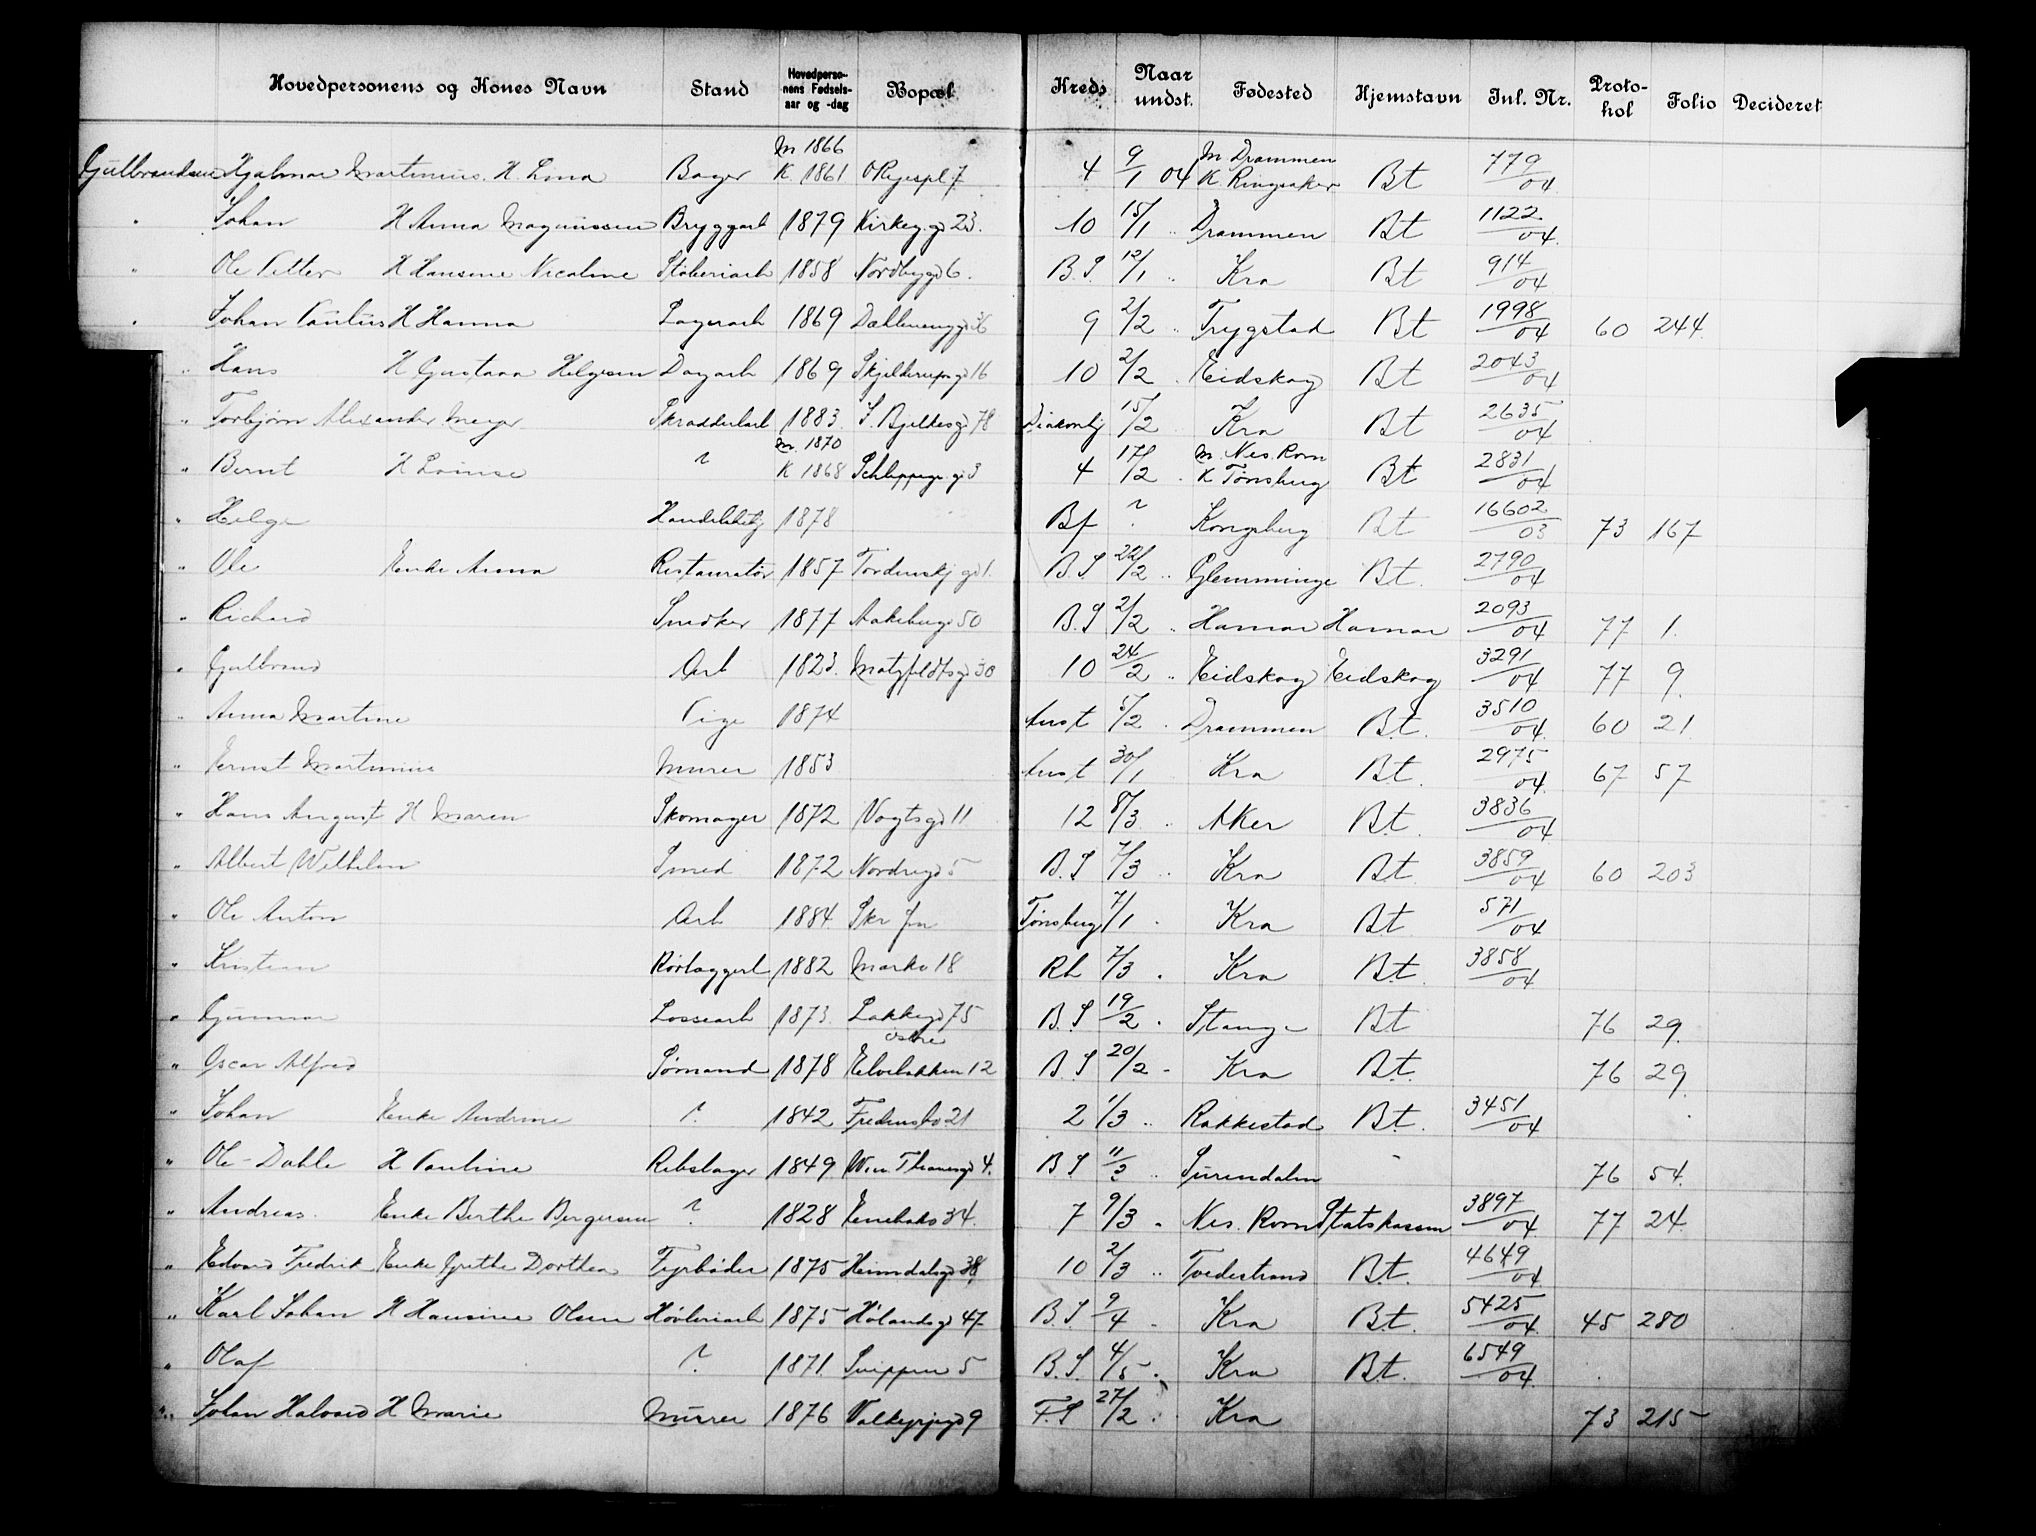 Hovedpersonens og Kones Navn Stand Hovedperso-nens Fødsels-aar og -dag Bopæl Kreds Naar undst. Fødested Hjemstavn Inl. Nr. Proto-hol Folio Decideret
Gulbrandsen Hjalmar Martinius. H. Lina Bager M 1866 K 1861 O Ryespl. 7 4 9/1 04 M Drammen K. Ringsaker Bt 779/04
" Johan H Anna Magnussen Bryggarb 1879 Kirkeg. gd 23. 10 15/1 " Drammen Bt 1122/04
" Ole Petter H Hansine Nicoline Støberiarb 1858 Nordbygd 6. B.S 12/1 " Kra Bt 914/04
" Johan Paulus H Hanna Lagerarb 1869 Dælenenggd 36 9 2/2 " Trygstad Bt 1998/04 60 244
" Hans H Gustava Helgesen Dagarb 1869 Skjelderupsgd 16 10 2/2 " Eidskog Bt 2043/04
" Torbjørn Alexander Meyer Skrædderarb 1883 J. Bjelkesgd 78 Diakonhj 15/2 Kra Bt 2635/04
" Bernt H Lovise ? M. 1870 K 1868 Schleppegr. gd 3 4 17/2 . M. Nes. Rom K Tønsberg Bt 2831/04
" Helge Handelsbetj 1878 Bf ? Kongsberg Bt 16602/03 73 167
" Ole Enke Anna Restauratør 1857 Tordenskj gd 1. B.S 22/2 " Glemminge Bt. 2790/04
" Richard Snedker 1877 Aakebergv 50 B.S 2/2 " Hamar Hamar 2093/04 77 1.
" Gulbrand Arb 1823. Motzfeldtsgd 30 10 24/2 " Eidskog Eidskog 3291/04 77 9.
" Anna Martine Pige 1874 Anst 5/2 . Drammen Bt. 3510/04 60 21
" Ernst Martinius Murer 1853 Anst 30/1 Kra Bt. 2975/04 67 57
" Hans August H Maren Skomager 1872 Vogtsgd 11 12 8/3 " Aker Bt. 3836/04
" Albert Wilhelm Smed 1872 Nordregd 5 B.S 7/3 " Kra Bt. 3859/04 60 203
" Ole Anton Arb 1884. Tønsberg 7/1 . Kra Bt. 571/04
" Kristian Rørlæggerl 1882 Markv 18 Rh 7/3 . Kra Bt. 3858/04
" Gunnar Lossearb 1873. Lakkegd 75 B.S 19/2 . Stange Bt 76 29.
" Oscar Alfred Sømand 1878 østre Elvebakken 12 B.S 20/2 - Kra Bt. 76 29.
" Johan Enke Andrine ? 1842 Fredensbv 21 2 1/3 " Rakkestad Bt. 3451/04
" Ole-Dahle H Pauline Rebslager 1849. Wm Thranesgd 4. B S 11/3 " Surendalen - 76 54.
" Andreas. Enke Berthe Bergersen ? 1828 Enebakv 34. 7 9/3 . Nes. Rom Statskassen 3897/04 77 24.
" Edvard Fredrik Enke Grethe Dorthea Fyrbøder 1875 Heimdalsgd 38 10 2/3 " Tvedestrand Bt. 4649/04
" Karl Johan H Hansine Olsen Høvleriarb 1875 Hølandsgd 47 B.S. 9/4 . Kra Bt. 5425/04 45 280
" Olaf ? 1871. Snippen 5 B.S. 4/5 . Kra Bt. 6549/04
" Johan Halvard H Marie Murer 1876 Valkyrjegd 9 F.S 27/2 . Kra 73 215